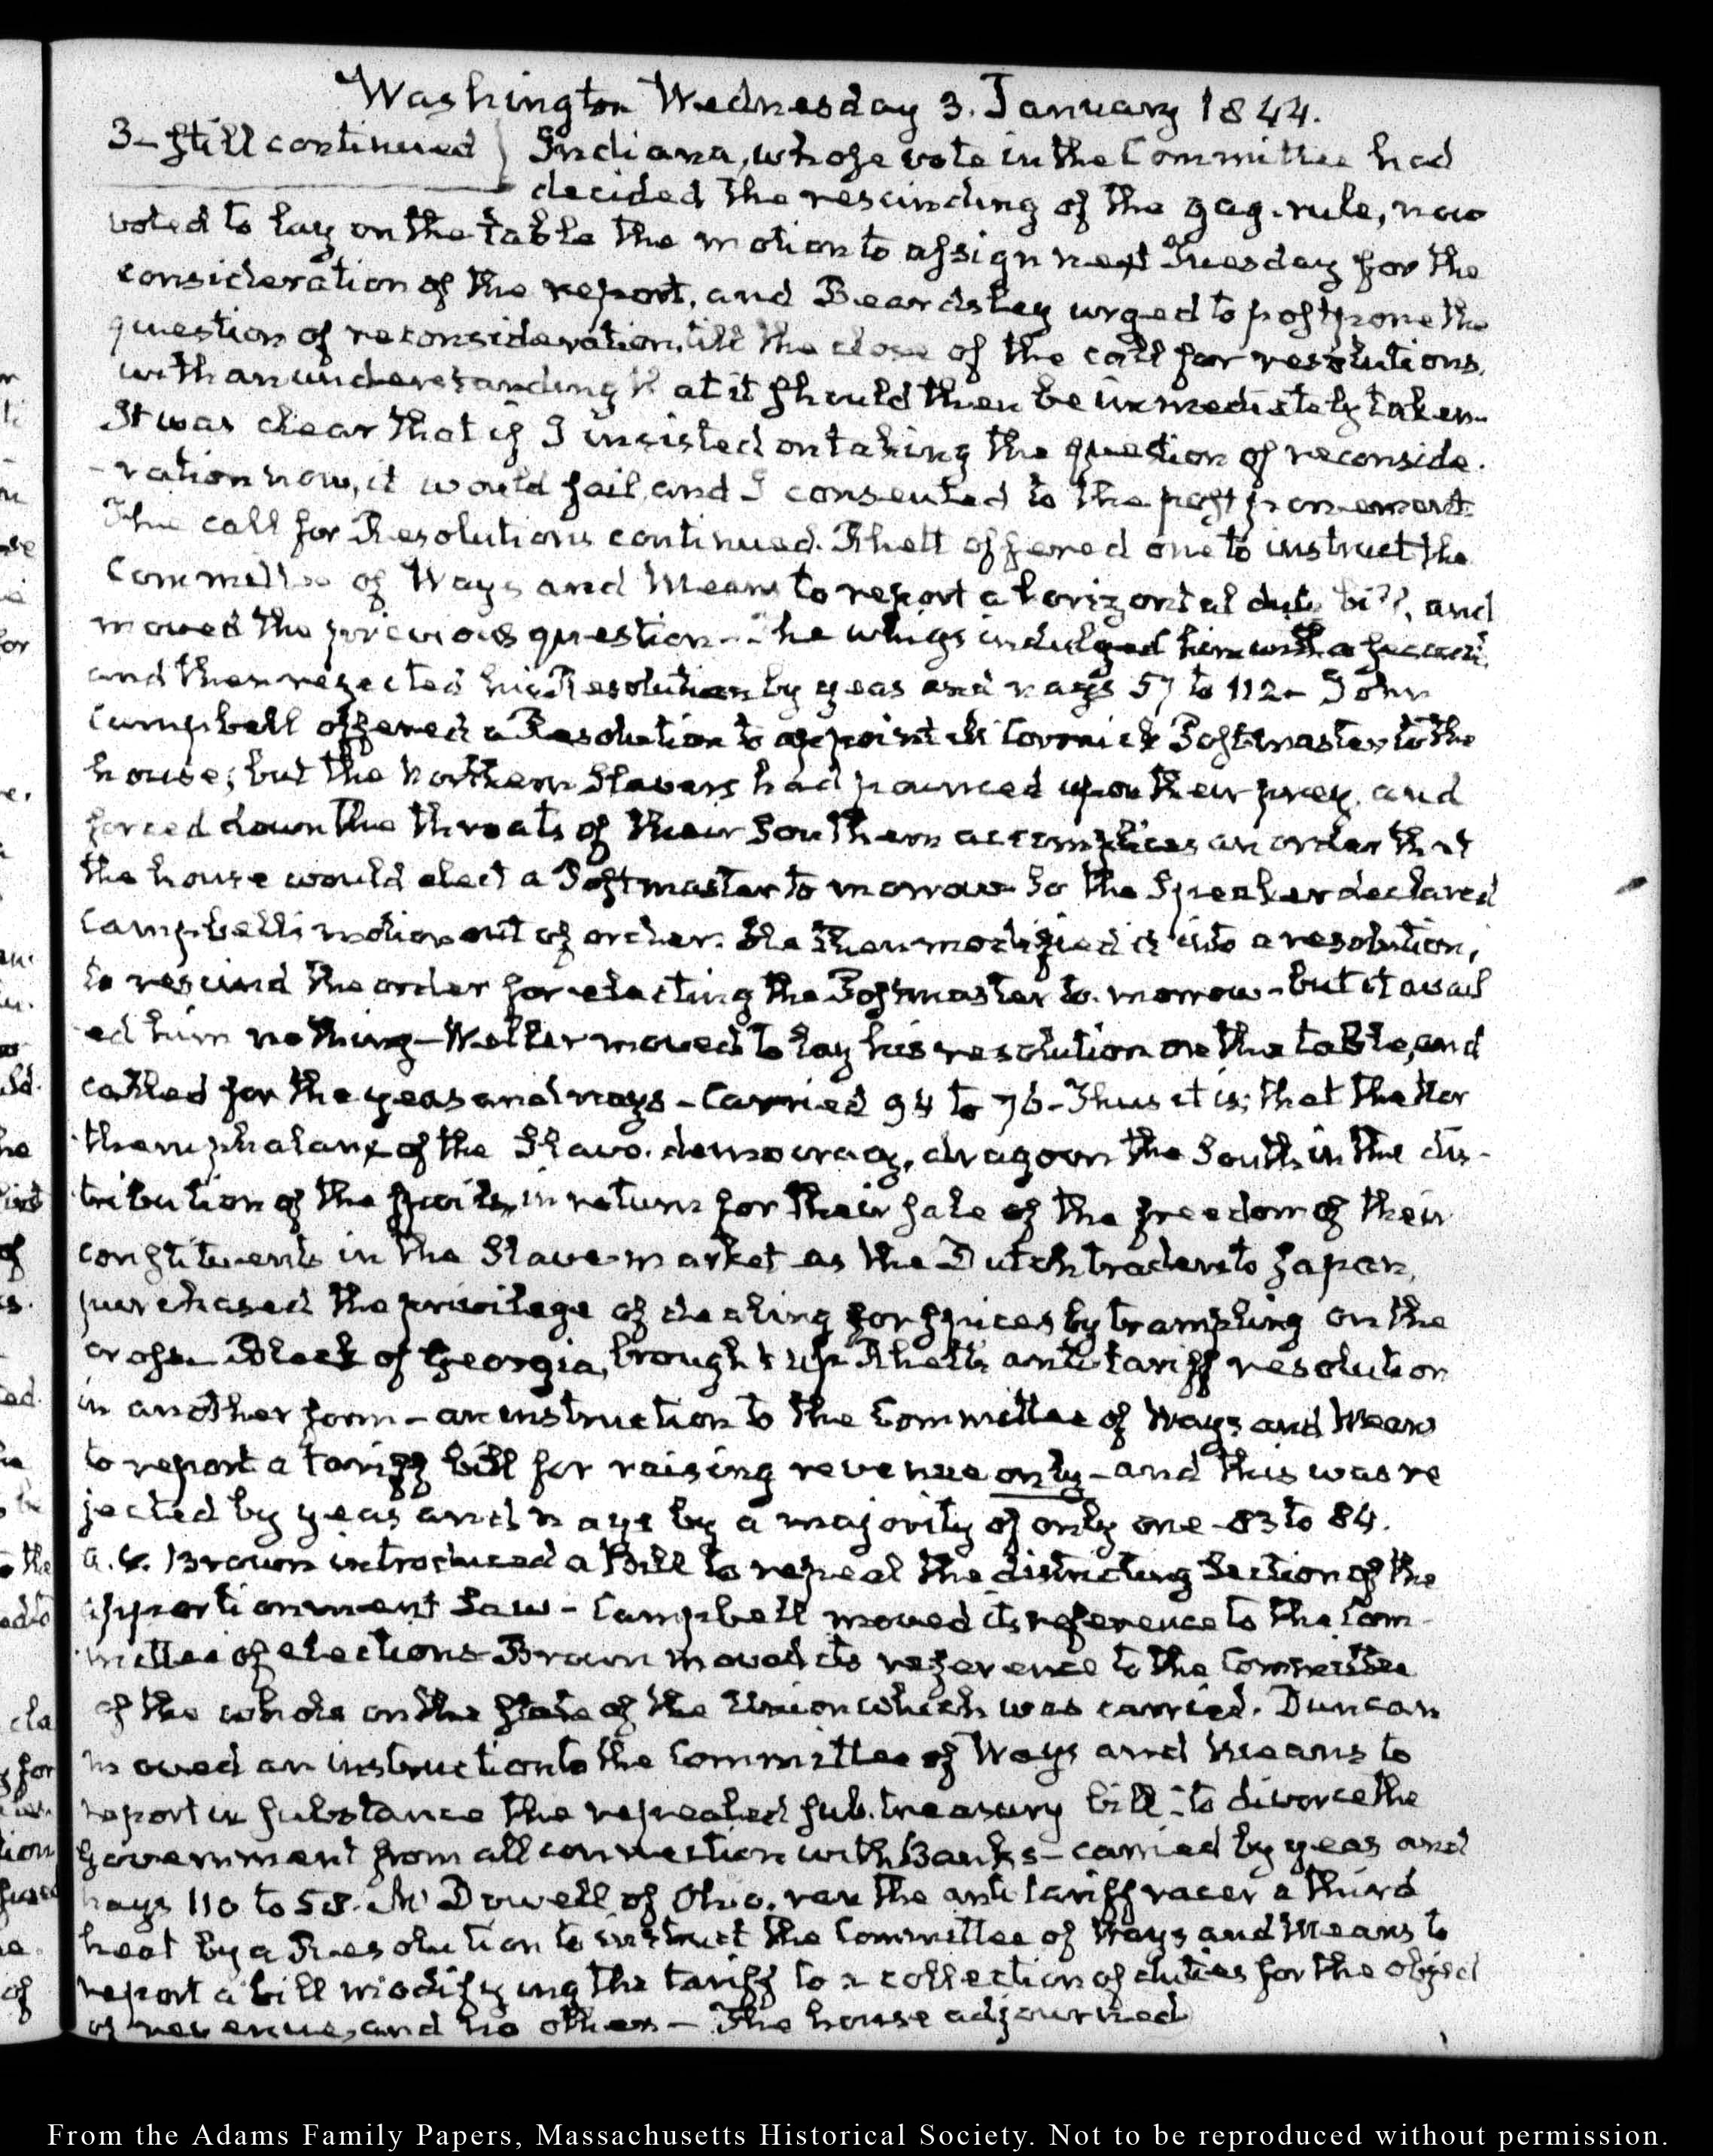 Washington Wednesday 3. January 1844.
3 – still continued } Indiana, whose vote in the Committee had
decided the rescinding of the gag-rule, now
voted to lay on the table the motion to assign next Tuesday for the
consideration of the report, and Beardsley urged to postpone the
question of reconsideration, till the close of the call for resolutions,
with an understanding that it should then be immediately taken.
It was clear that if I insisted on taking the question of reconside-
-ration now, it would fail, and I consented to the postponement.
The call for Resolutions continued. Rhett offered one to instruct the
Committee of Ways and Means to report a horizontal duty bill, and
moved the previous question – The whigs indulged him with a second,
and then rejected his Resolution by yeas and nays 57 to 112 – John
Campbell offered a Resolution to appoint McCormick Postmaster to the
house; but the Northern Slavers had pounced upon their prey, and
forced down the throats of their Southern accomplices an order that
the house would elect a Postmaster to morrow – So the Speaker declared
Campbell's motion out of order. He then modified it into a resolution,
to rescind the order for electing the Postmaster to-morrow – but it avail
ed him nothing – Weller moved to lay his resolution on the table, and
called for the yeas and nays – Carried 94 to 76 – Thus it is; that the Nor
thern phalanx of the Slavo-democracy, dragoon the South in the dis-
tribution of the spoils, in return for their sale of the freedom of their
constituents in the Slave-market as the Dutch traders to Japan,
purchased the privilege of dealing for spices by trampling on the
cross – Black of Georgia, brought up Rhett's anti tariff resolution
in another form – an instruction to the Committee of Ways and Means
to report a tariff bill for raising revenue only – and this was re
jected by yeas and nays by a majority of only one – 83 to 84.
A. V. Brown introduced a Bill to repeal the districting Section of the
apportionment Law – Campbell moved its reference to the Com-
mittee of elections – Brown moved its reference to the Committee
of the whole on the state of the Union which was carried. Duncan
moved an instruction to the Committee of Ways and Means to
report in substance the repealed sub-treasury bill – to divorce the
Government from all connection with Banks – carried by yeas and
nays 110 to 58. McDowell of Ohio. ran the anti tariff racer a third
heat by a Resolution to instruct the Committee of Ways and Means to
report a bill modifying the tariff to a collection of duties for the object
of revenue, and no other – The house adjourned
From the Adams Family Papers, Massachusetts Historical Society. Not to be reproduced without permission.